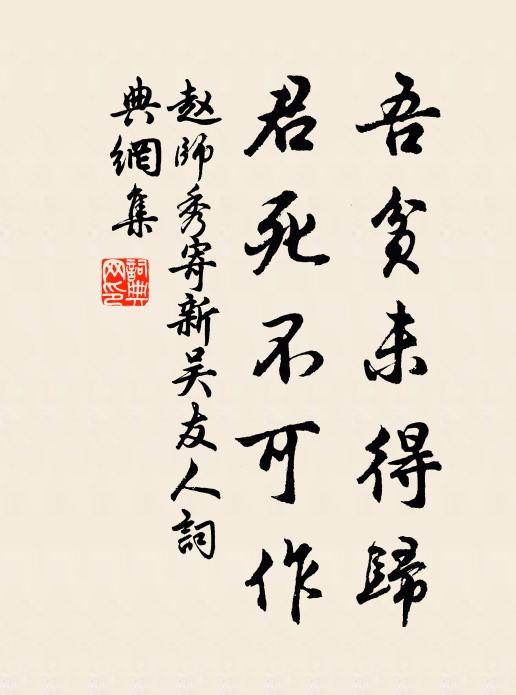 吾貧未得歸
君死不可作
赵師秀寄新吴友人詞
典網集
詞典
网印